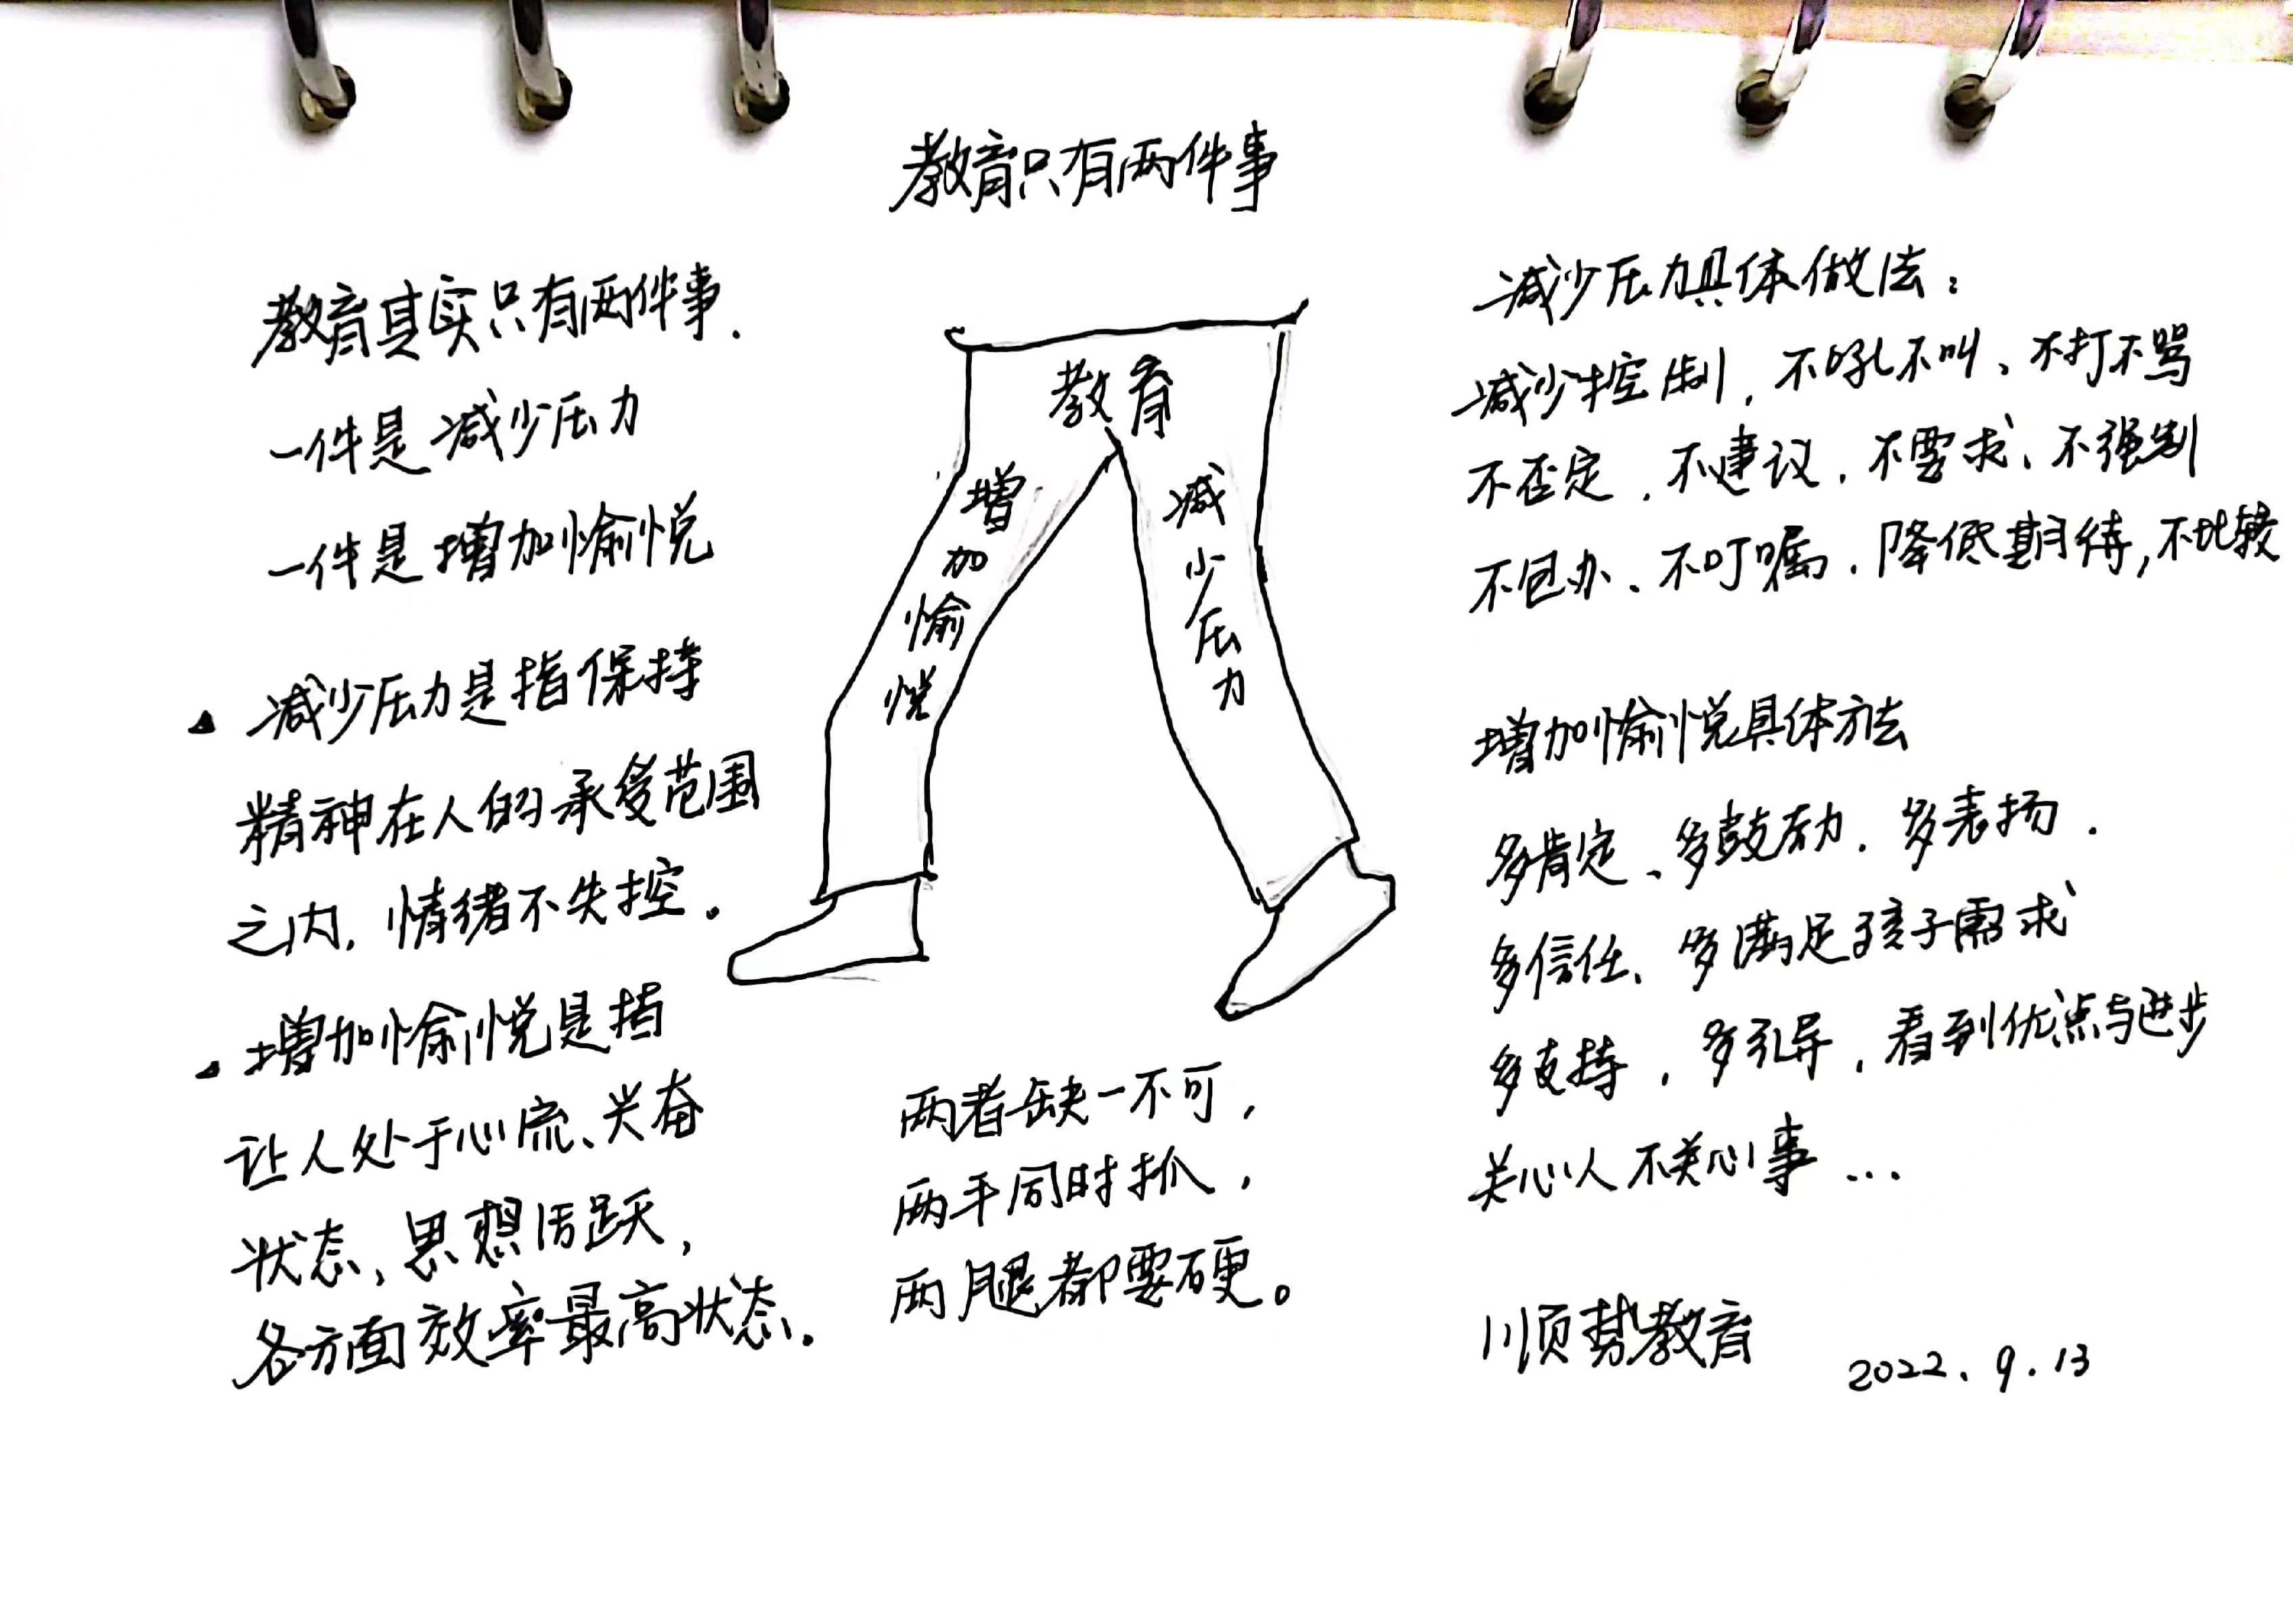 教育只有两件事
教育其实只有两件事.
一件是减少压力
一件是增加愉悦
减少压力是指保持
精神在人的承受范围
之内,情绪不失控。
增加愉悦是指
让人处于心流、兴奋
状态,思想活跃,
各方面效率最高状态。
教育
增加愉悦
减少压力
两者缺一不可,
两手同时抓,
两腿都要硬。
减少压力具体做法:
减少控制,不吼不叫、不打不骂
不否定,不建议,不要求、不强制
不包办、不叮嘱,降低期待,不比较
增加愉悦具体方法
多肯定、多鼓励,多表扬.
多信任、多满足孩子需求
多支持,多引导,看到优点与进步
关心人不关心事...
顺势教育
2022.9.13